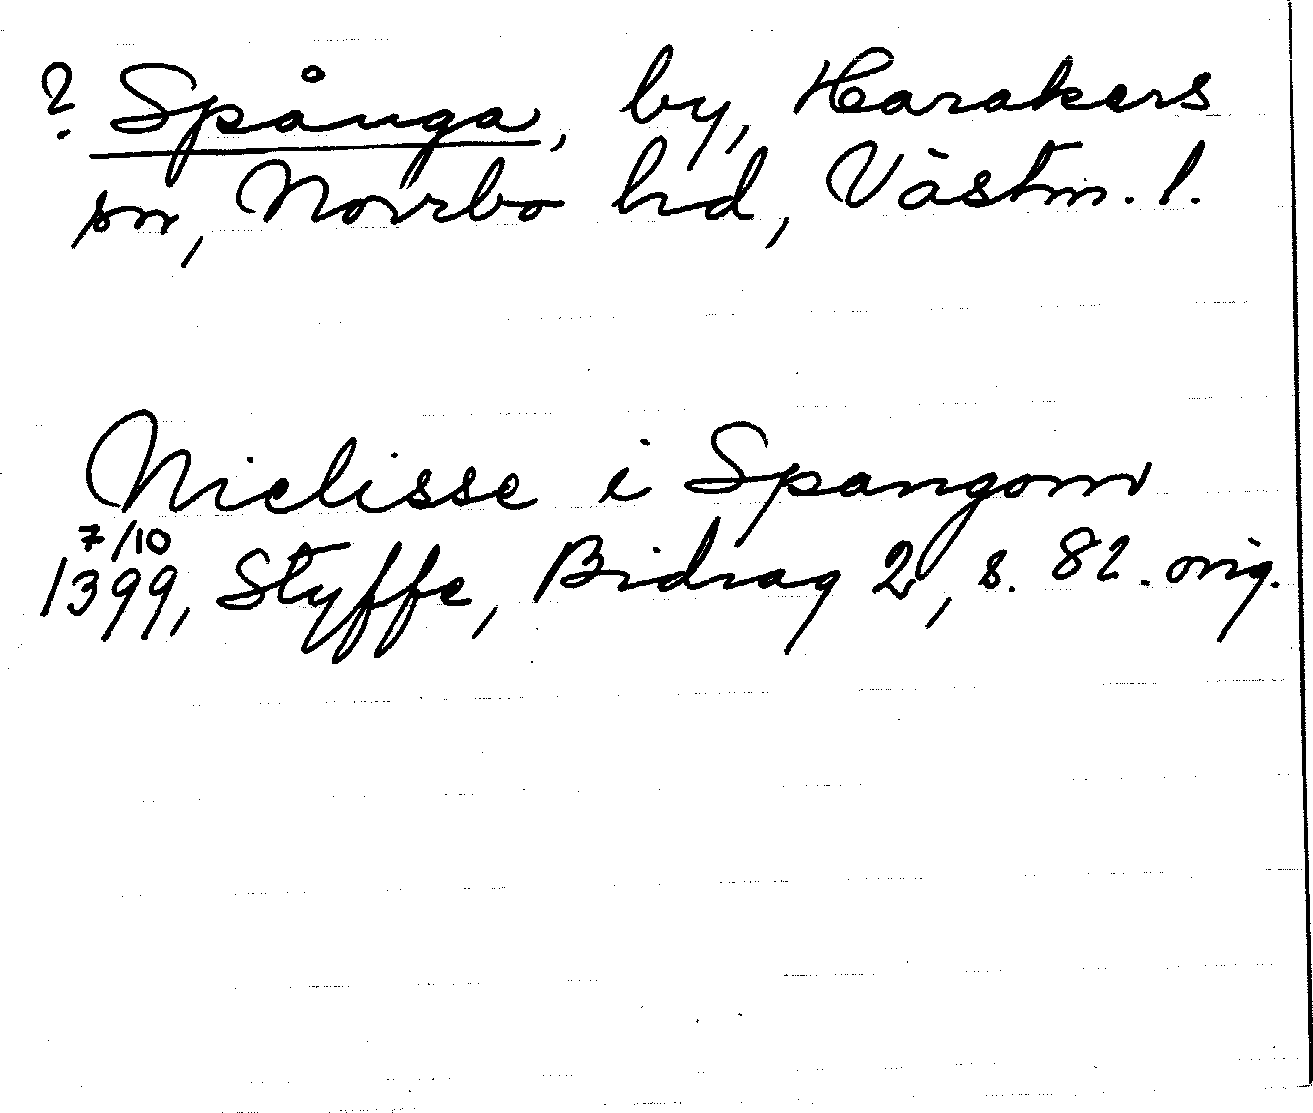 ? Spånga, by, Harakers
sn, Norrbo hd, Västm. l.
Nielisse i Spangom
7/10
1399, Styffe, Bidrag 2, s. 82. orig.